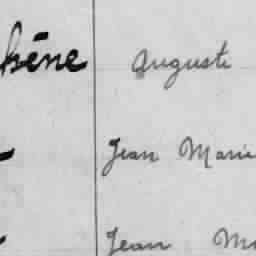 hêne Auguste
Jean Marie
Jean